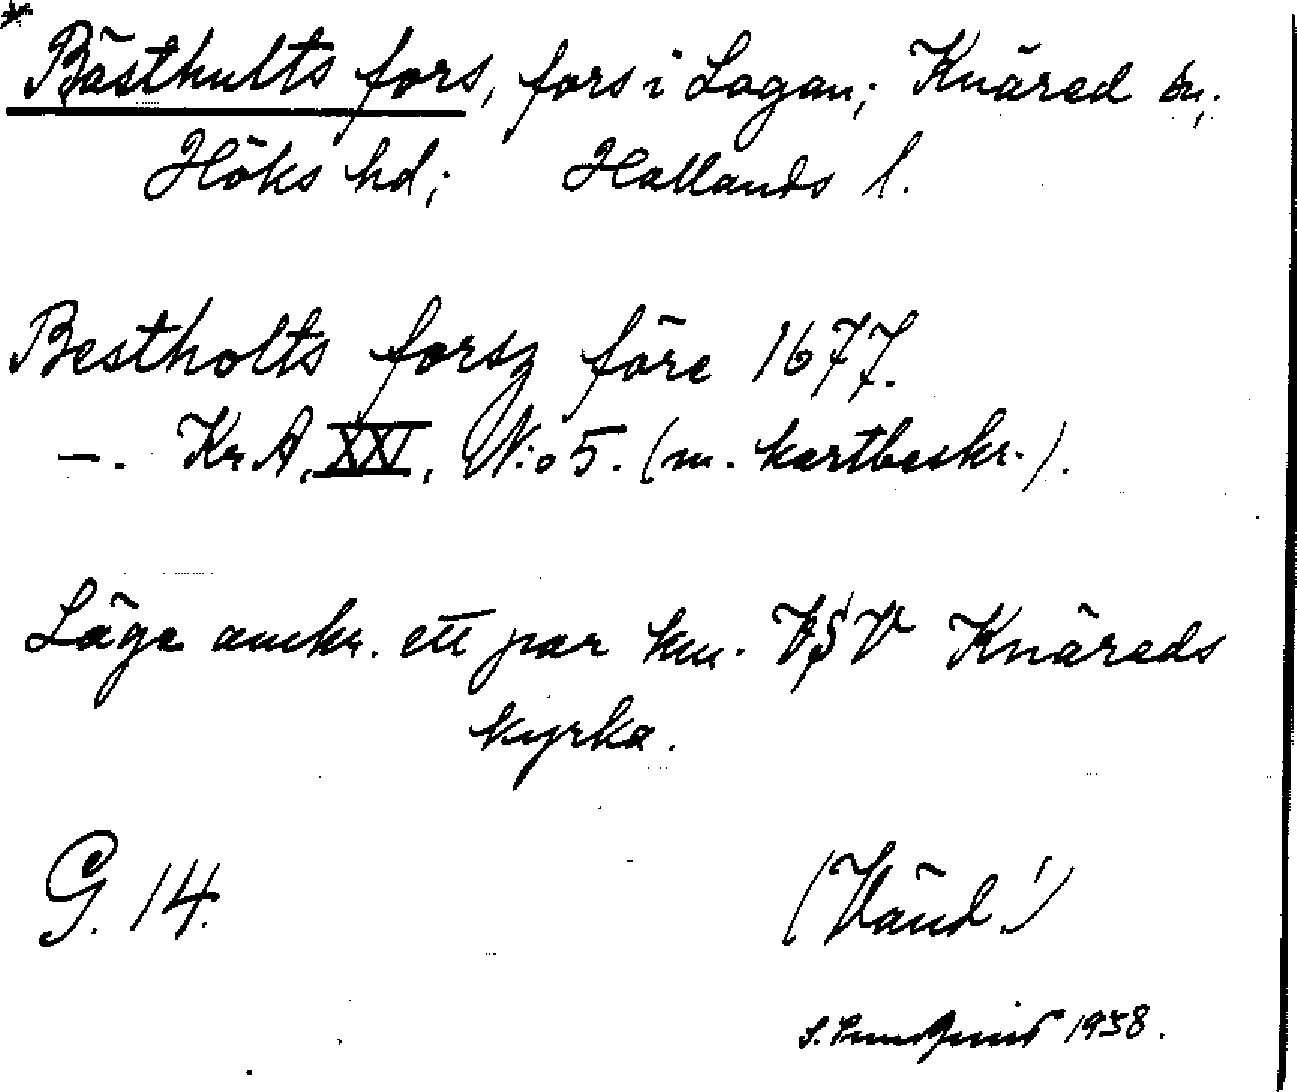 * Bästhults fors, fors i Lagan; Knäred sn;
Höks hd; Hallands l.
Bestholts forsz före 1677.
—. Kr. A, XXI, N:o 5. (m. kartbeskr.).
Läge omkr. ett par km. VSV Knäreds
kyrka.
G. 14.
(Vänd!)
1938.